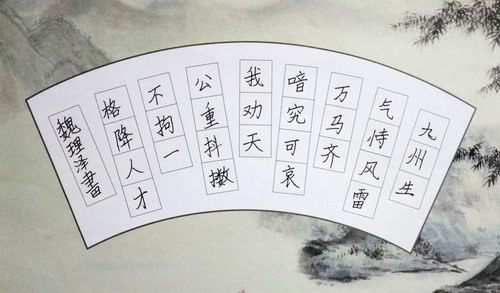 九州生
气恃风雷
万马齐
喑究可哀
我劝天
公重抖擞
不拘一
格降人才
魏理泽書